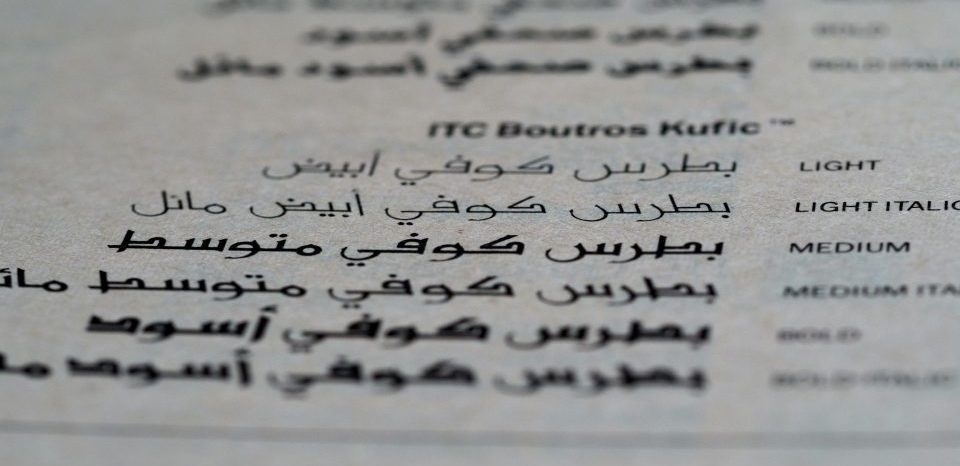 بطرس صحفي أسود BOLD
بطرس صحفي أسود مائل BOLD ITALIC
ITC Boutros Kufic ™
بطرس كوفي أبيض LIGHT
بطرس كوفي أبيض مائل LIGHT ITALIC
بطرس كوفي متوسط MEDIUM
بطرس كوفي متوسط مائل MEDIUM ITA
بطرس كوفي أسود BOLD
بطرس كوفي أسود BOLD ITALIC